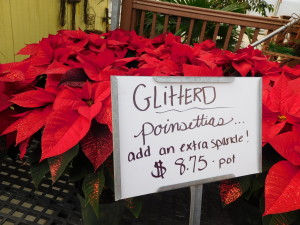 GLitterD
poinsettias...
add an extra sparkle!
$8.75 - pot